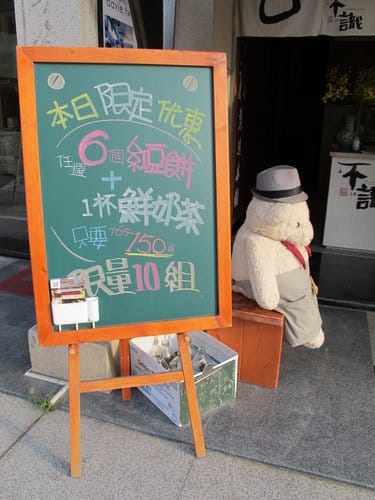 本日限定优惠
任選6個紅豆餅
+
1杯鮮奶茶
只要 165 150元
限量10組
不識
不識